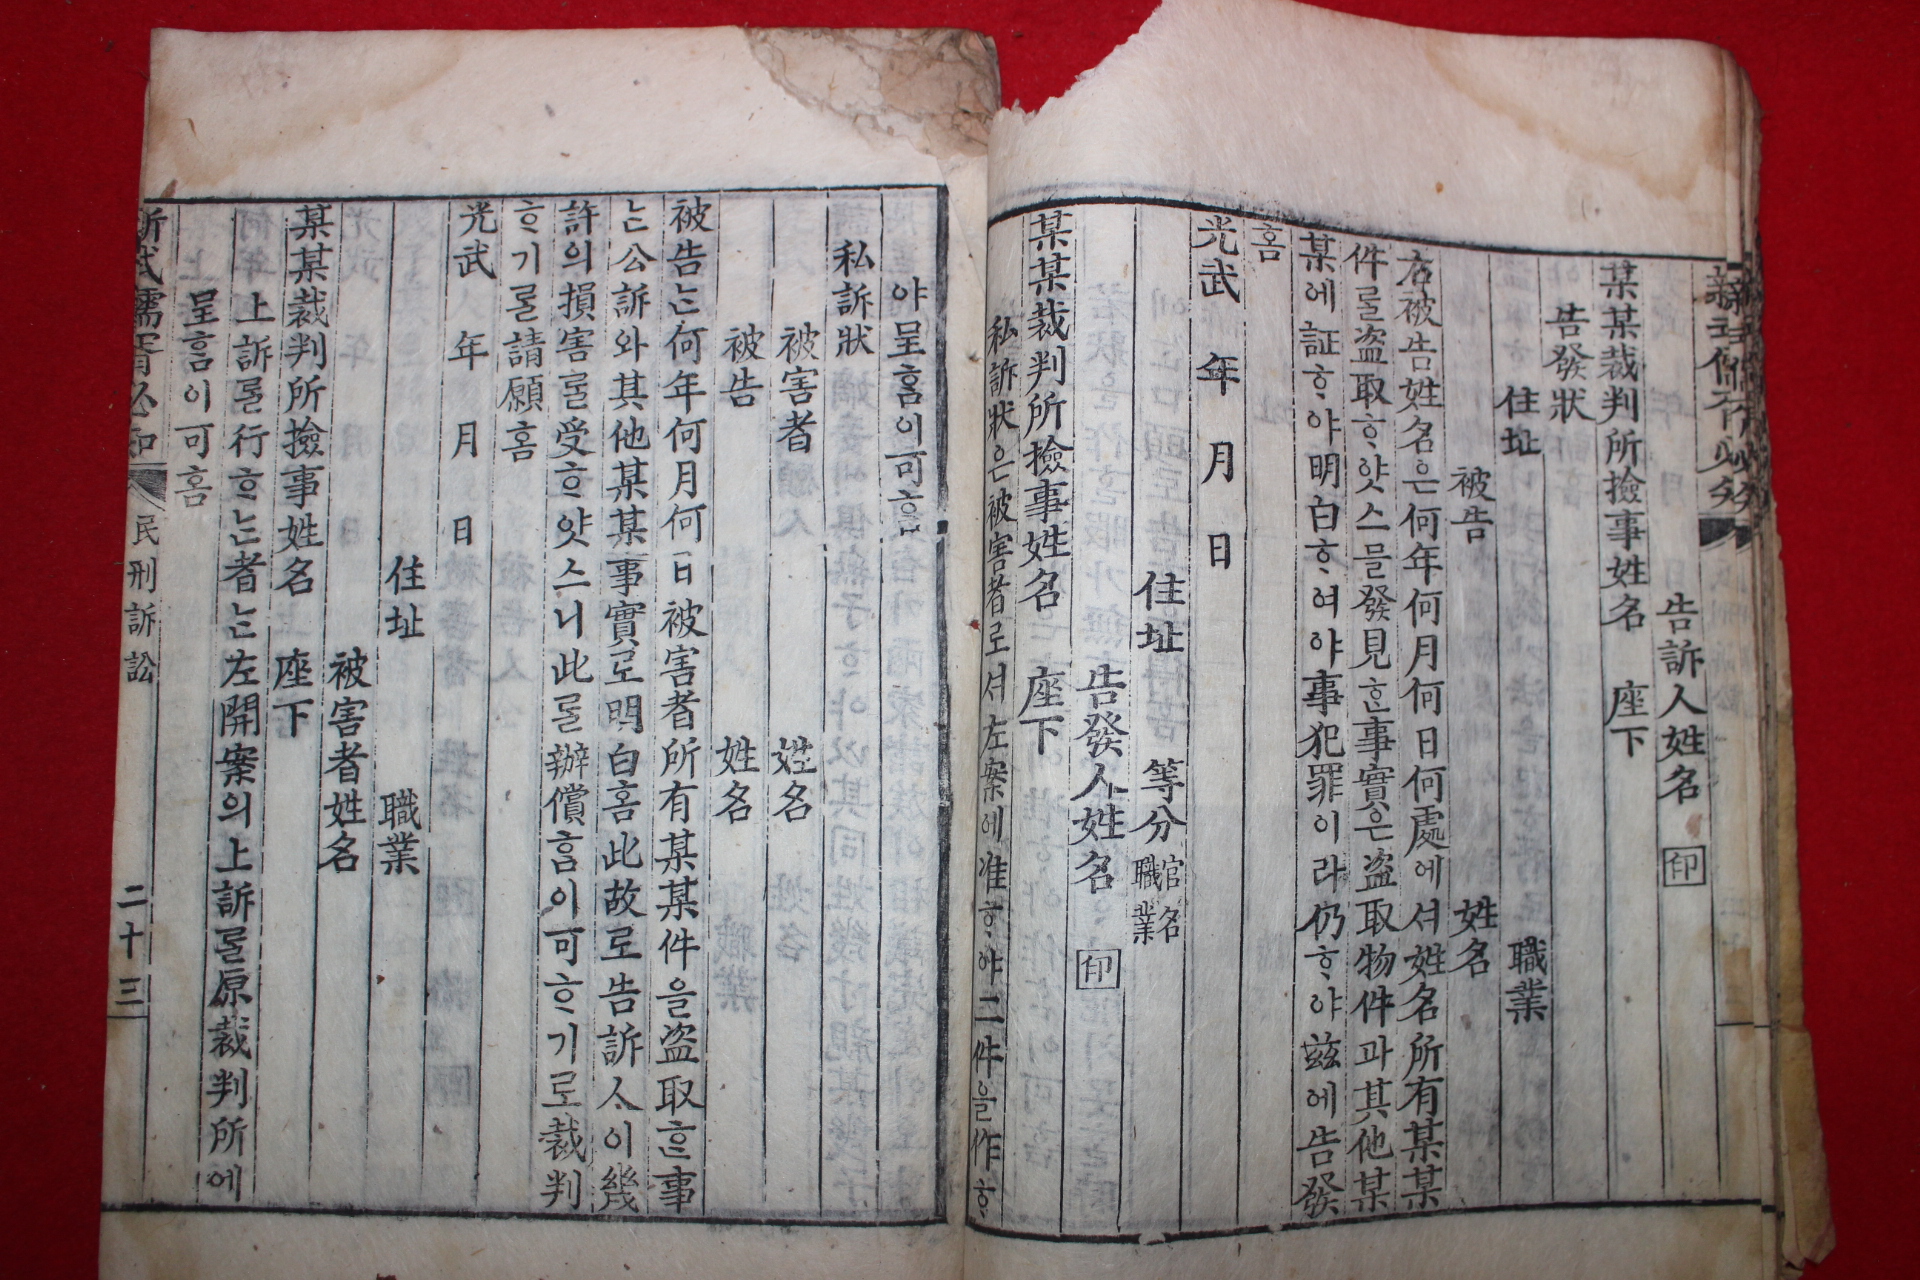 告訴人姓名 印
某某裁判所撿事姓名 座下
告發狀
住址 職業
被告 姓名
右被告姓名은何年何月何日何處에셔姓名所有某某
件를盜取ᄒᆞ얏스믈發見ᄒᆞᆫ事實은盜取物件과其他某
某에証ᄒᆞ야明白ᄒᆞ여야事犯罪이라仍ᄒᆞ야玆에告發
홈
光武 年 月 日
住址 等分 官名 職業
告發人姓名 印
某某裁判所撿事姓名 座下
私訴狀은被害者로셔左案에准ᄒᆞ야二件을作ᄒᆞ
야呈홈이可홈
私訴狀
被害者 姓名
被告 姓名
被告ᄂᆞᆫ何年何月何日被害者所有某某件을盜取ᄒᆞᆫ事
ᄂᆞᆫ公訴와其他某某事實로明白홈此故로告訴人이幾
許의損害ᄅᆞᆯ受ᄒᆞ얏스니此ᄅᆞᆯ辦償홈이可ᄒᆞ기로裁判
ᄒᆞ기ᄅᆞᆯ請願홈
光武 年 月 日
住址 職業
被害者姓名
某某裁判所撿事姓名 座下
上訴ᄅᆞᆯ行ᄒᆞᄂᆞᆫ者ᄂᆞᆫ左開案의上訴ᄅᆞᆯ原裁判所에
呈홈이可홈
新式儒胥必知 民刑訴訟 二十三